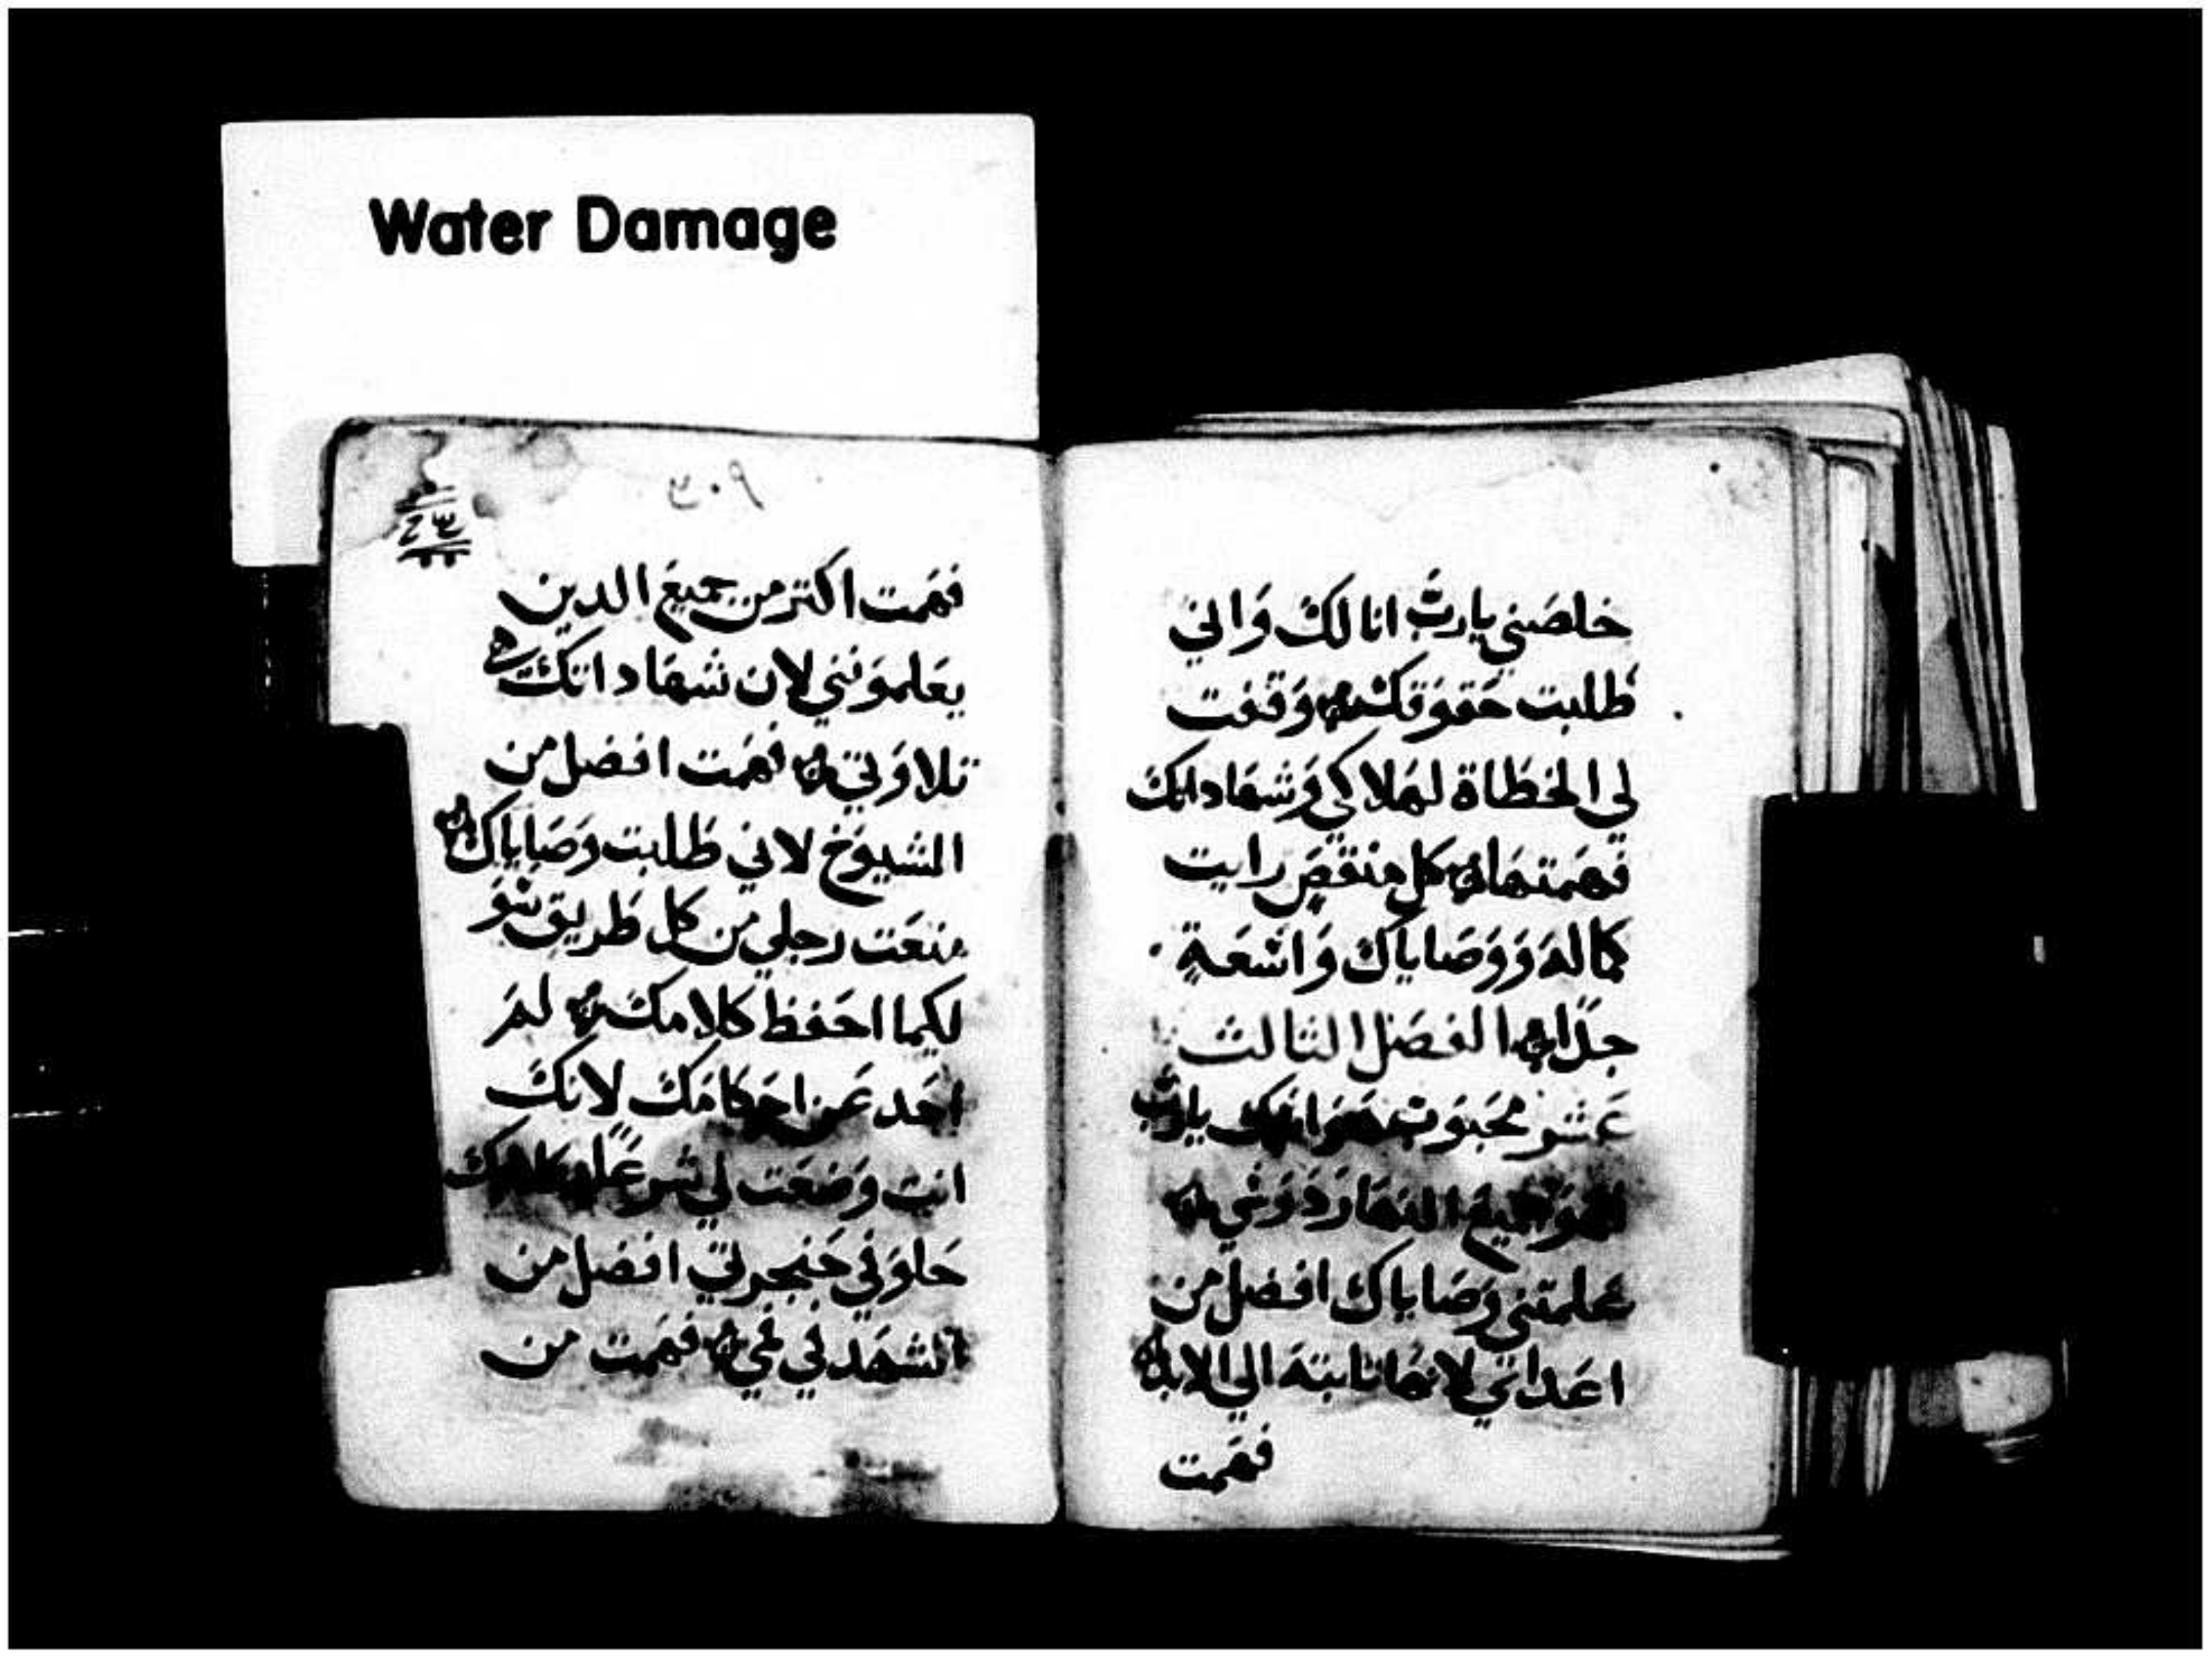 Water Damage
خلصني يارب انا لك واني
طلبت حقوقك وقفت
لي الخطاة لهلاكي وشهاداتك
فهمتها كل منقص رايت
كماله ووصاياك واسعة
جدا الفصل التالت
عشر محبوب هو اسمك يارب
النهار درسي
علمتني وصاياك افضل من
اعداي لانها تابته الي الابد
فهمت
فهمت اكتر من جميع الدين
يعلمونني لان شهاداتك هي
تلاوتي فهمت افضل من
الشيوخ لاني طلبت وصاياك
منعت رجلي من كل طريق سو
لكيما احفظ كلامك لم
احد عن احكامك لانك
انت وضعت لي
حلو في حنجرتي افضل من
الشهد في في فهمت من